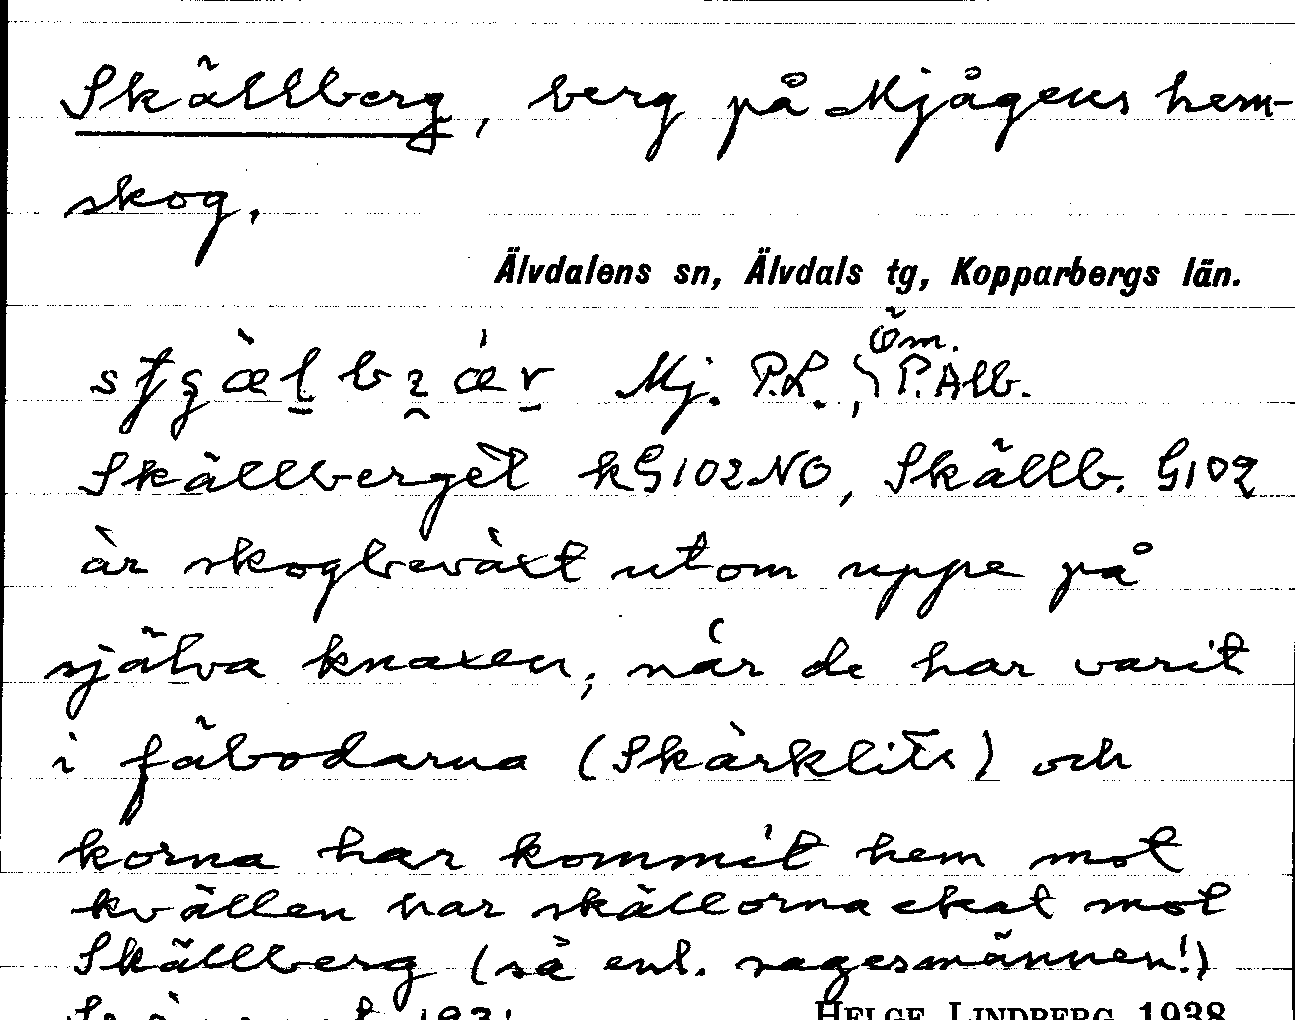 Skällberg, berg på Mjågens hem-
skog.
Älvdalens sn, Älvdals tg, Kopparbergs län.
Mj. P.L., Öm. P.Alb.
Skällberget kG102NO, Skällb. G102
är skogbeväxt utom uppe på
själva knaxen; när de har varit
i fäbodarna (Skärklitt) och
korna har kommit hem mot
kvällen har skällorna ekat mot
Skällberg (så enl. sagesmännen!)
HELGE LINDBERG 1938